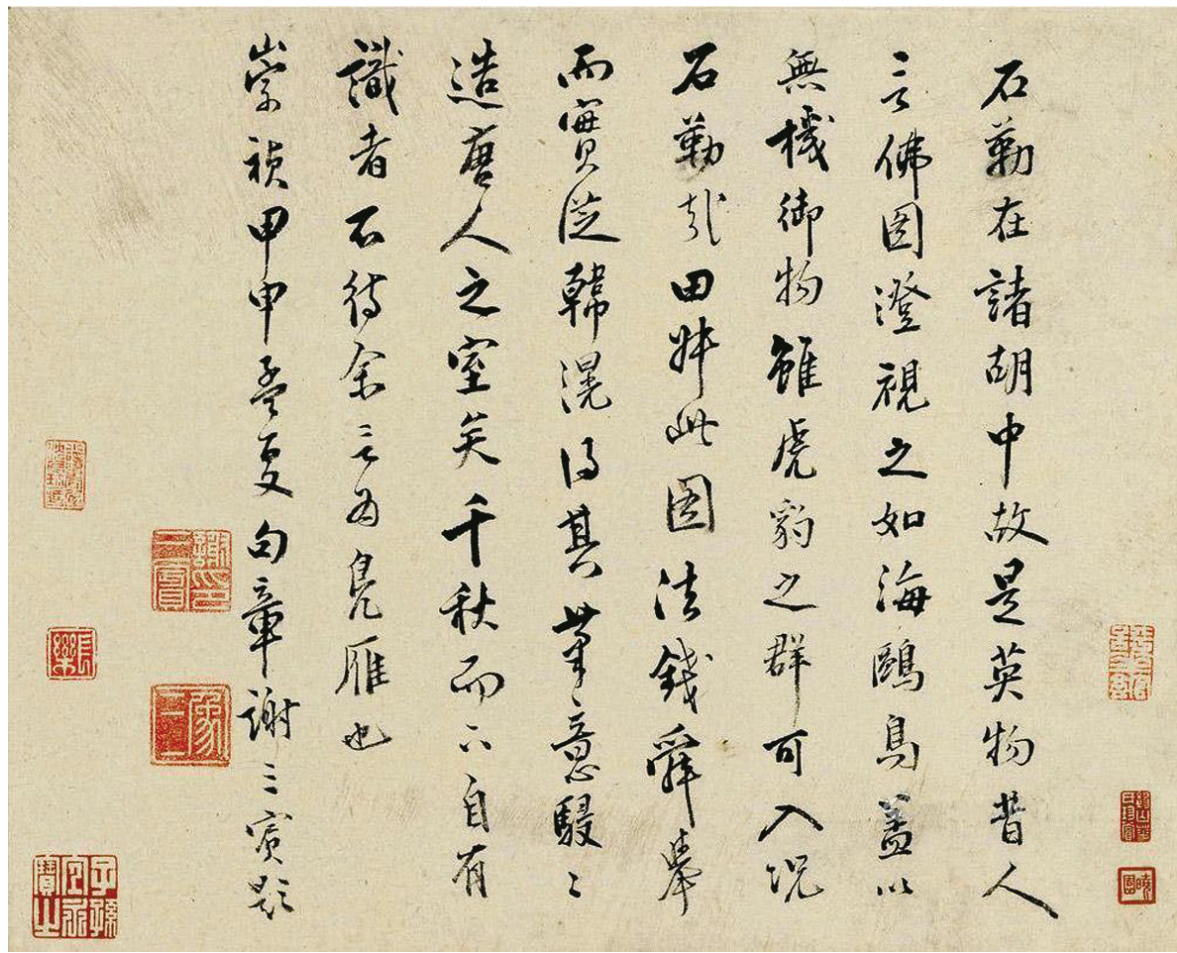 石勒在諸胡中故是英物昔人
言佛圖澄視之如海鷗鳥蓋以
無機御物雖虎豹之群可入況
石勒哉田叔此圖法錢舜舉
而實從韓滉得其筆意駸〻
造唐人之室矣千秋而下自有
識者不待余言為鳧雁也
崇禎甲申孟夏句章謝三賓題
謝三賓印
象三